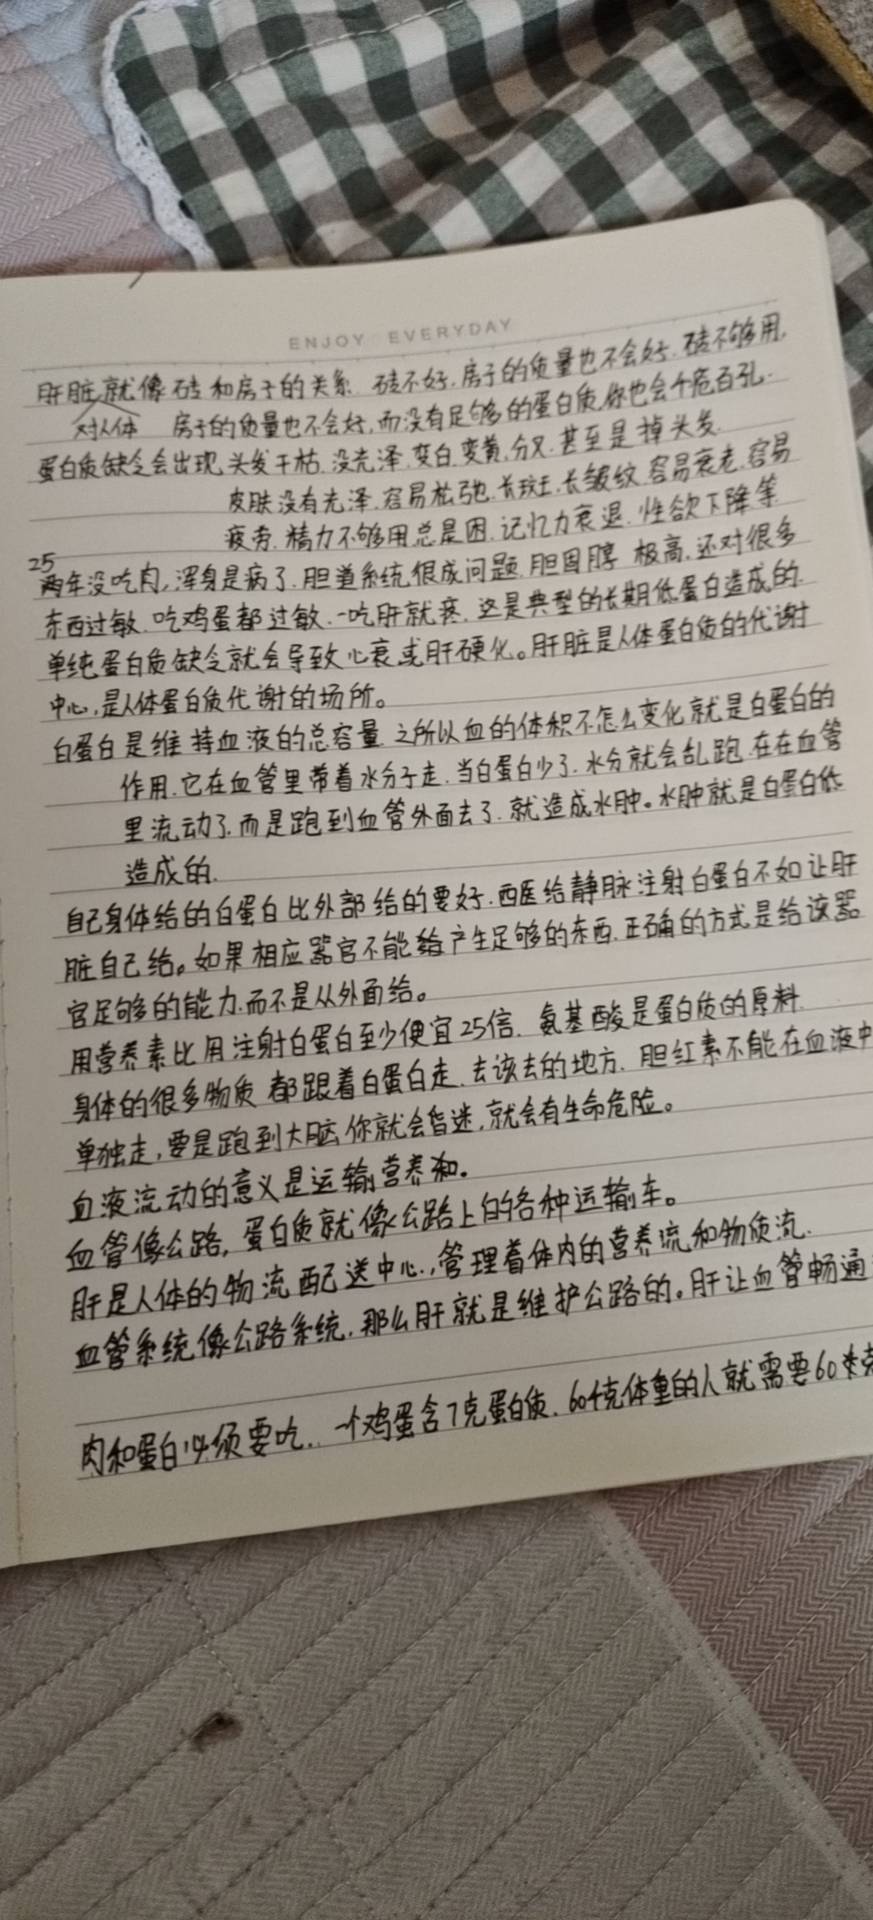 ENJOY EVERYDAY
肝脏就像砖和房子的关系 砖不好.房子的质量也不会好.砖不够用,
对人体 房子的质量也不会好,而没有足够的蛋白质,你也会千疮百孔.
蛋白质缺乏会出现 头发干枯.没光泽.变白.变黄.分叉.甚至是掉头发.
皮肤没有光泽.容易松弛.长斑.长皱纹.容易衰老.容易
疲劳.精力不够用总是困.记忆力衰退.性欲下降等
25
两年没吃肉,浑身是病了.胆道系统很成问题.胆固醇 极高.还对很多
东西过敏.吃鸡蛋都过敏.一吃肝就疼.这是典型的长期低蛋白造成的.
单纯蛋白质缺乏就会导致心衰或肝硬化。肝脏是人体蛋白质的代谢
中心,是人体蛋白质代谢的场所。
白蛋白是维持血液的总容量.之所以血的体积不怎么变化就是白蛋白的
作用.它在血管里带着水分子走.当白蛋白少了.水分就会乱跑.在在血管
里流动了.而是跑到血管外面去了.就造成水肿。水肿就是白蛋白低
造成的.
自己身体给的白蛋白比外部给的要好.西医给静脉注射白蛋白不如让肝
脏自己给。如果相应器官不能产生足够的东西.正确的方式是给该器
官足够的能力.而不是从外面给。
用营养素比用注射白蛋白至少便宜25倍. 氨基酸是蛋白质的原料.
身体的很多物质 都跟着白蛋白走.去该去的地方. 胆红素不能在血液中
单独走,要是跑到大脑你就会昏迷,就会有生命危险。
血液流动的意义是运输营养和.
血管像公路,蛋白质就像公路上的各种运输车。
肝是人体的物流配送中心.,管理着体内的营养流和物质流.
血管系统像公路系统.那么肝就是维护公路的。肝让血管畅通
肉和蛋白必须要吃.. 一个鸡蛋含7克蛋白质.60千克体重的人就需要60克